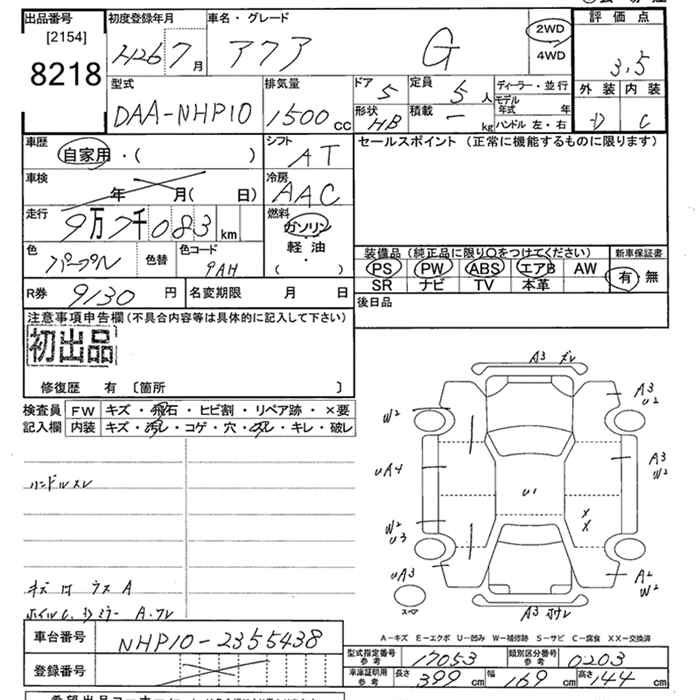 出品番号 初度登録年月 車名・グレード 評価点
[2154]
8218 H26 7月 アクア G 2WD 4WD 3.5
型式 排気量 ドア 定員 ディーラー・並行 外装 内装
DAA-NHP10 1500cc 5 5人 モデル年式 年
形状 HB 積載 - kg ハンドル 左・右 D C
車歴 シフト セールスポイント (正常に機能するものに限ります)
自家用・( ) AT
車検 年 月( 日) 冷房 AAC
走行 9万7千083km 燃料 ガソリン
軽油
( ・ )
色 パープル 色替 色コード 9AH
装備品(純正品に限り○をつけてください) 新車保証書
PS PW ABS エアB AW 有 無
SR ナビ TV 本革
R券 9130円 名変期限 月 日 後日品
注意事項申告欄(不具合内容等は具体的に記入して下さい)
初出品
修復歴 有 〔箇所 〕
検査員 FW キズ・飛石・ヒビ割・リペア跡・×要
記入欄 内装 キズ・汚レ・コゲ・穴・スレ・キレ・破レ
ハンドルスレ
A3 ズレ
A3
U2
W2
UA4
A3
W2
U1
X
X
W2
U3
UA3
A2
W2
スペア
A3
キズ
A
A-キズ E-エクボ U-凹み W-補修跡 S-サビ C-腐食 XX-交換済
車台番号 NHP10-2355438
登録番号
型式指定番号 参考 17053 類別区分番号 参考 0203
車庫証明用 参考 長さ 399cm 幅 169cm 高さ 144cm